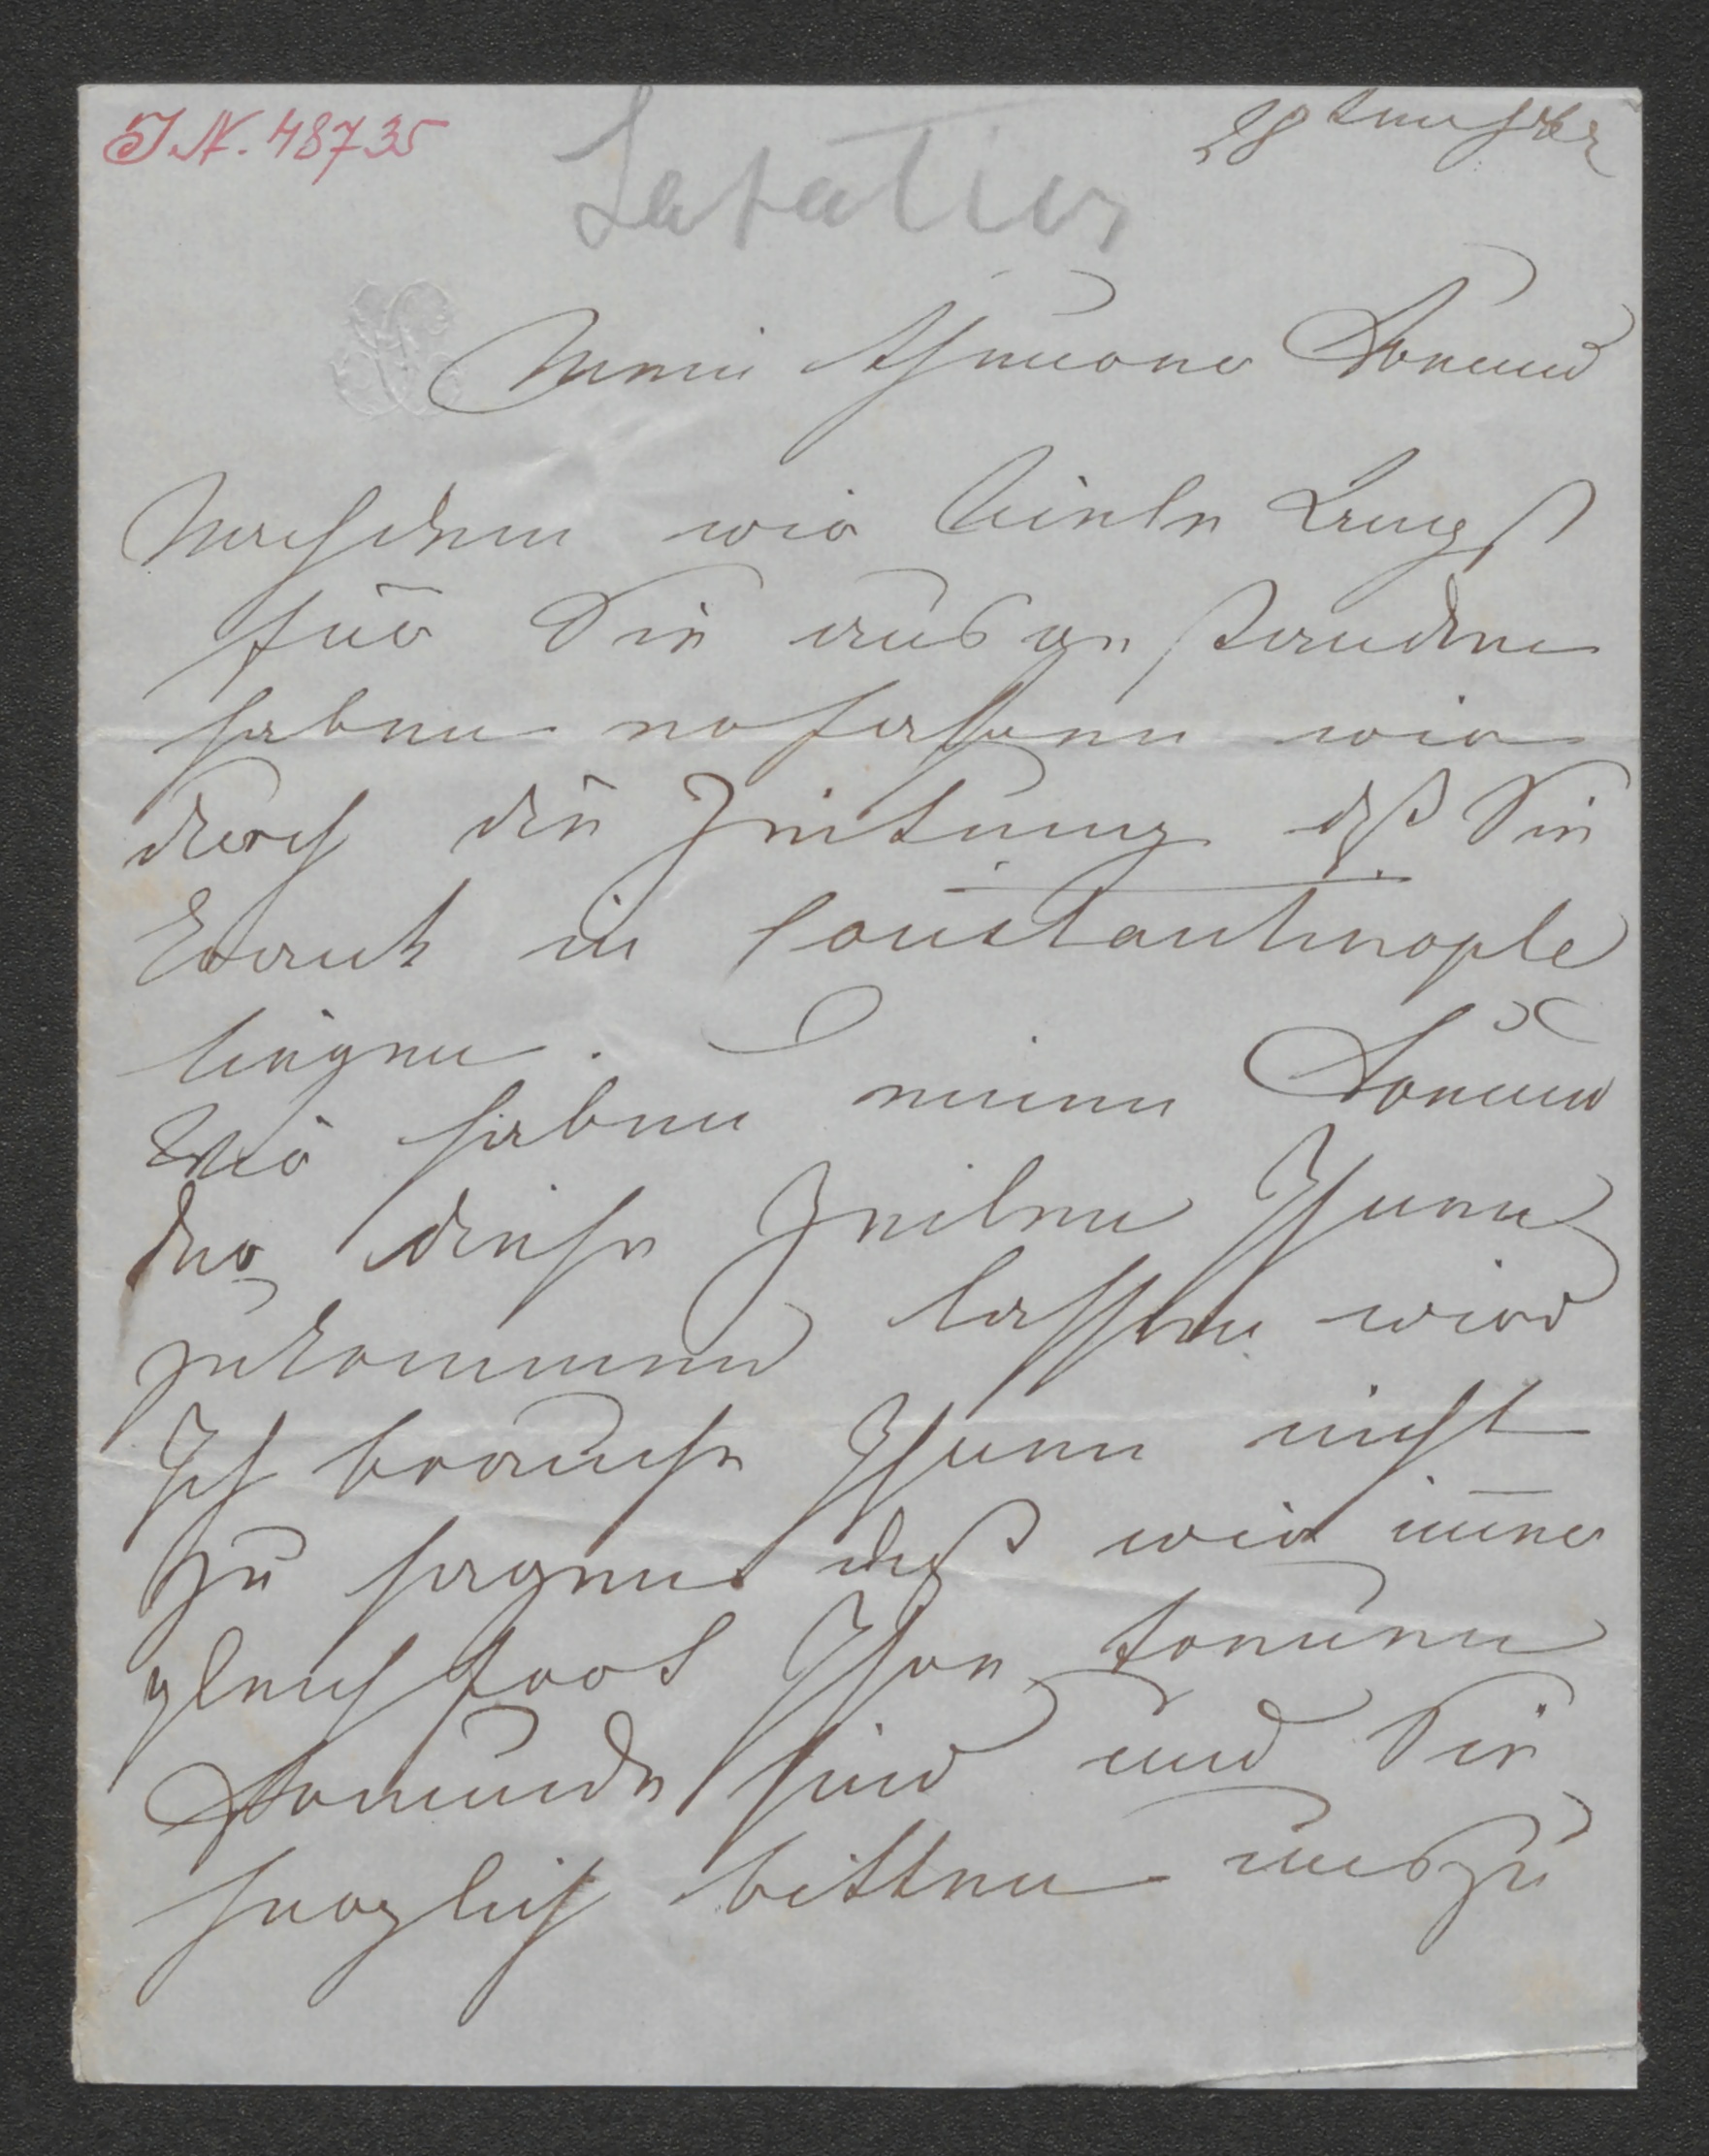 I.N. 48735
Sabatier
28
Mein theurer Freund
Nachdem wir viele Angst
für Sie ausgestanden
haben erfahren wir
durch die Zeitung daß Sie
krank in Constantinople
liegen.
Wir haben einen Freund
der diese Zeilen Ihnen
zukommen lassen wird
Ich brauche Ihnen nicht
zu sagen daß wir immer
gleich fort Ihre treuen
Freunde sind und Sie
herzlich bitten uns zu